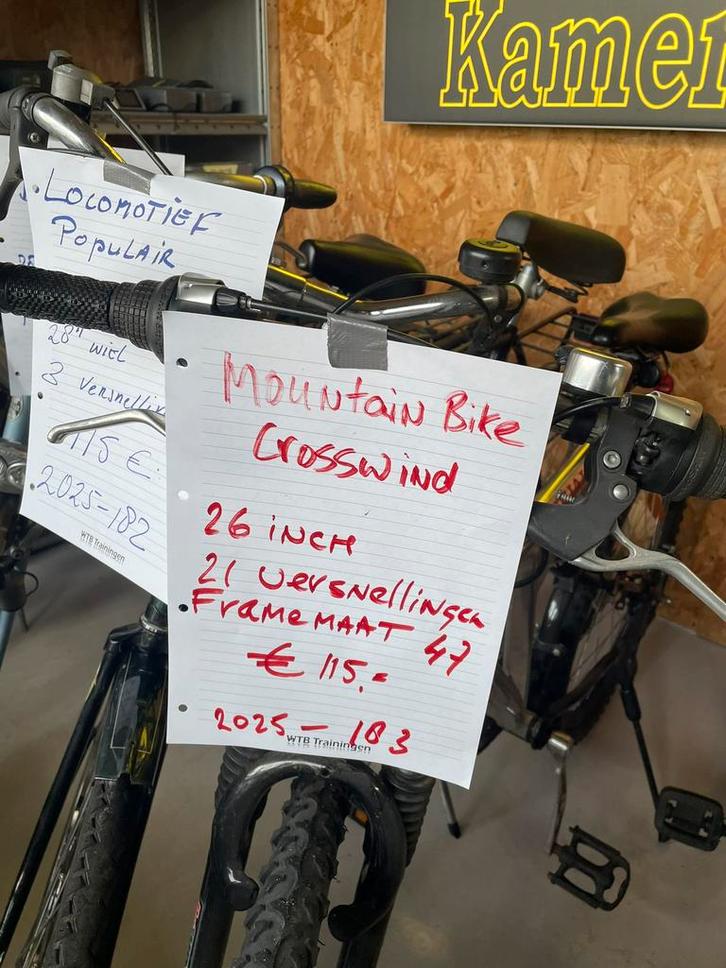 Kamer
LOCOMOTIEF
POPULAIR
28" wiel
3 versnellin
115 €.
2025-182
WTB Trainingen
MOUNtAiN Bike
CrosswinD
26 iNCH
21 versnellingen
FrameMAAT 47
€ 115,-
2025 - 183
WTB Trainingen